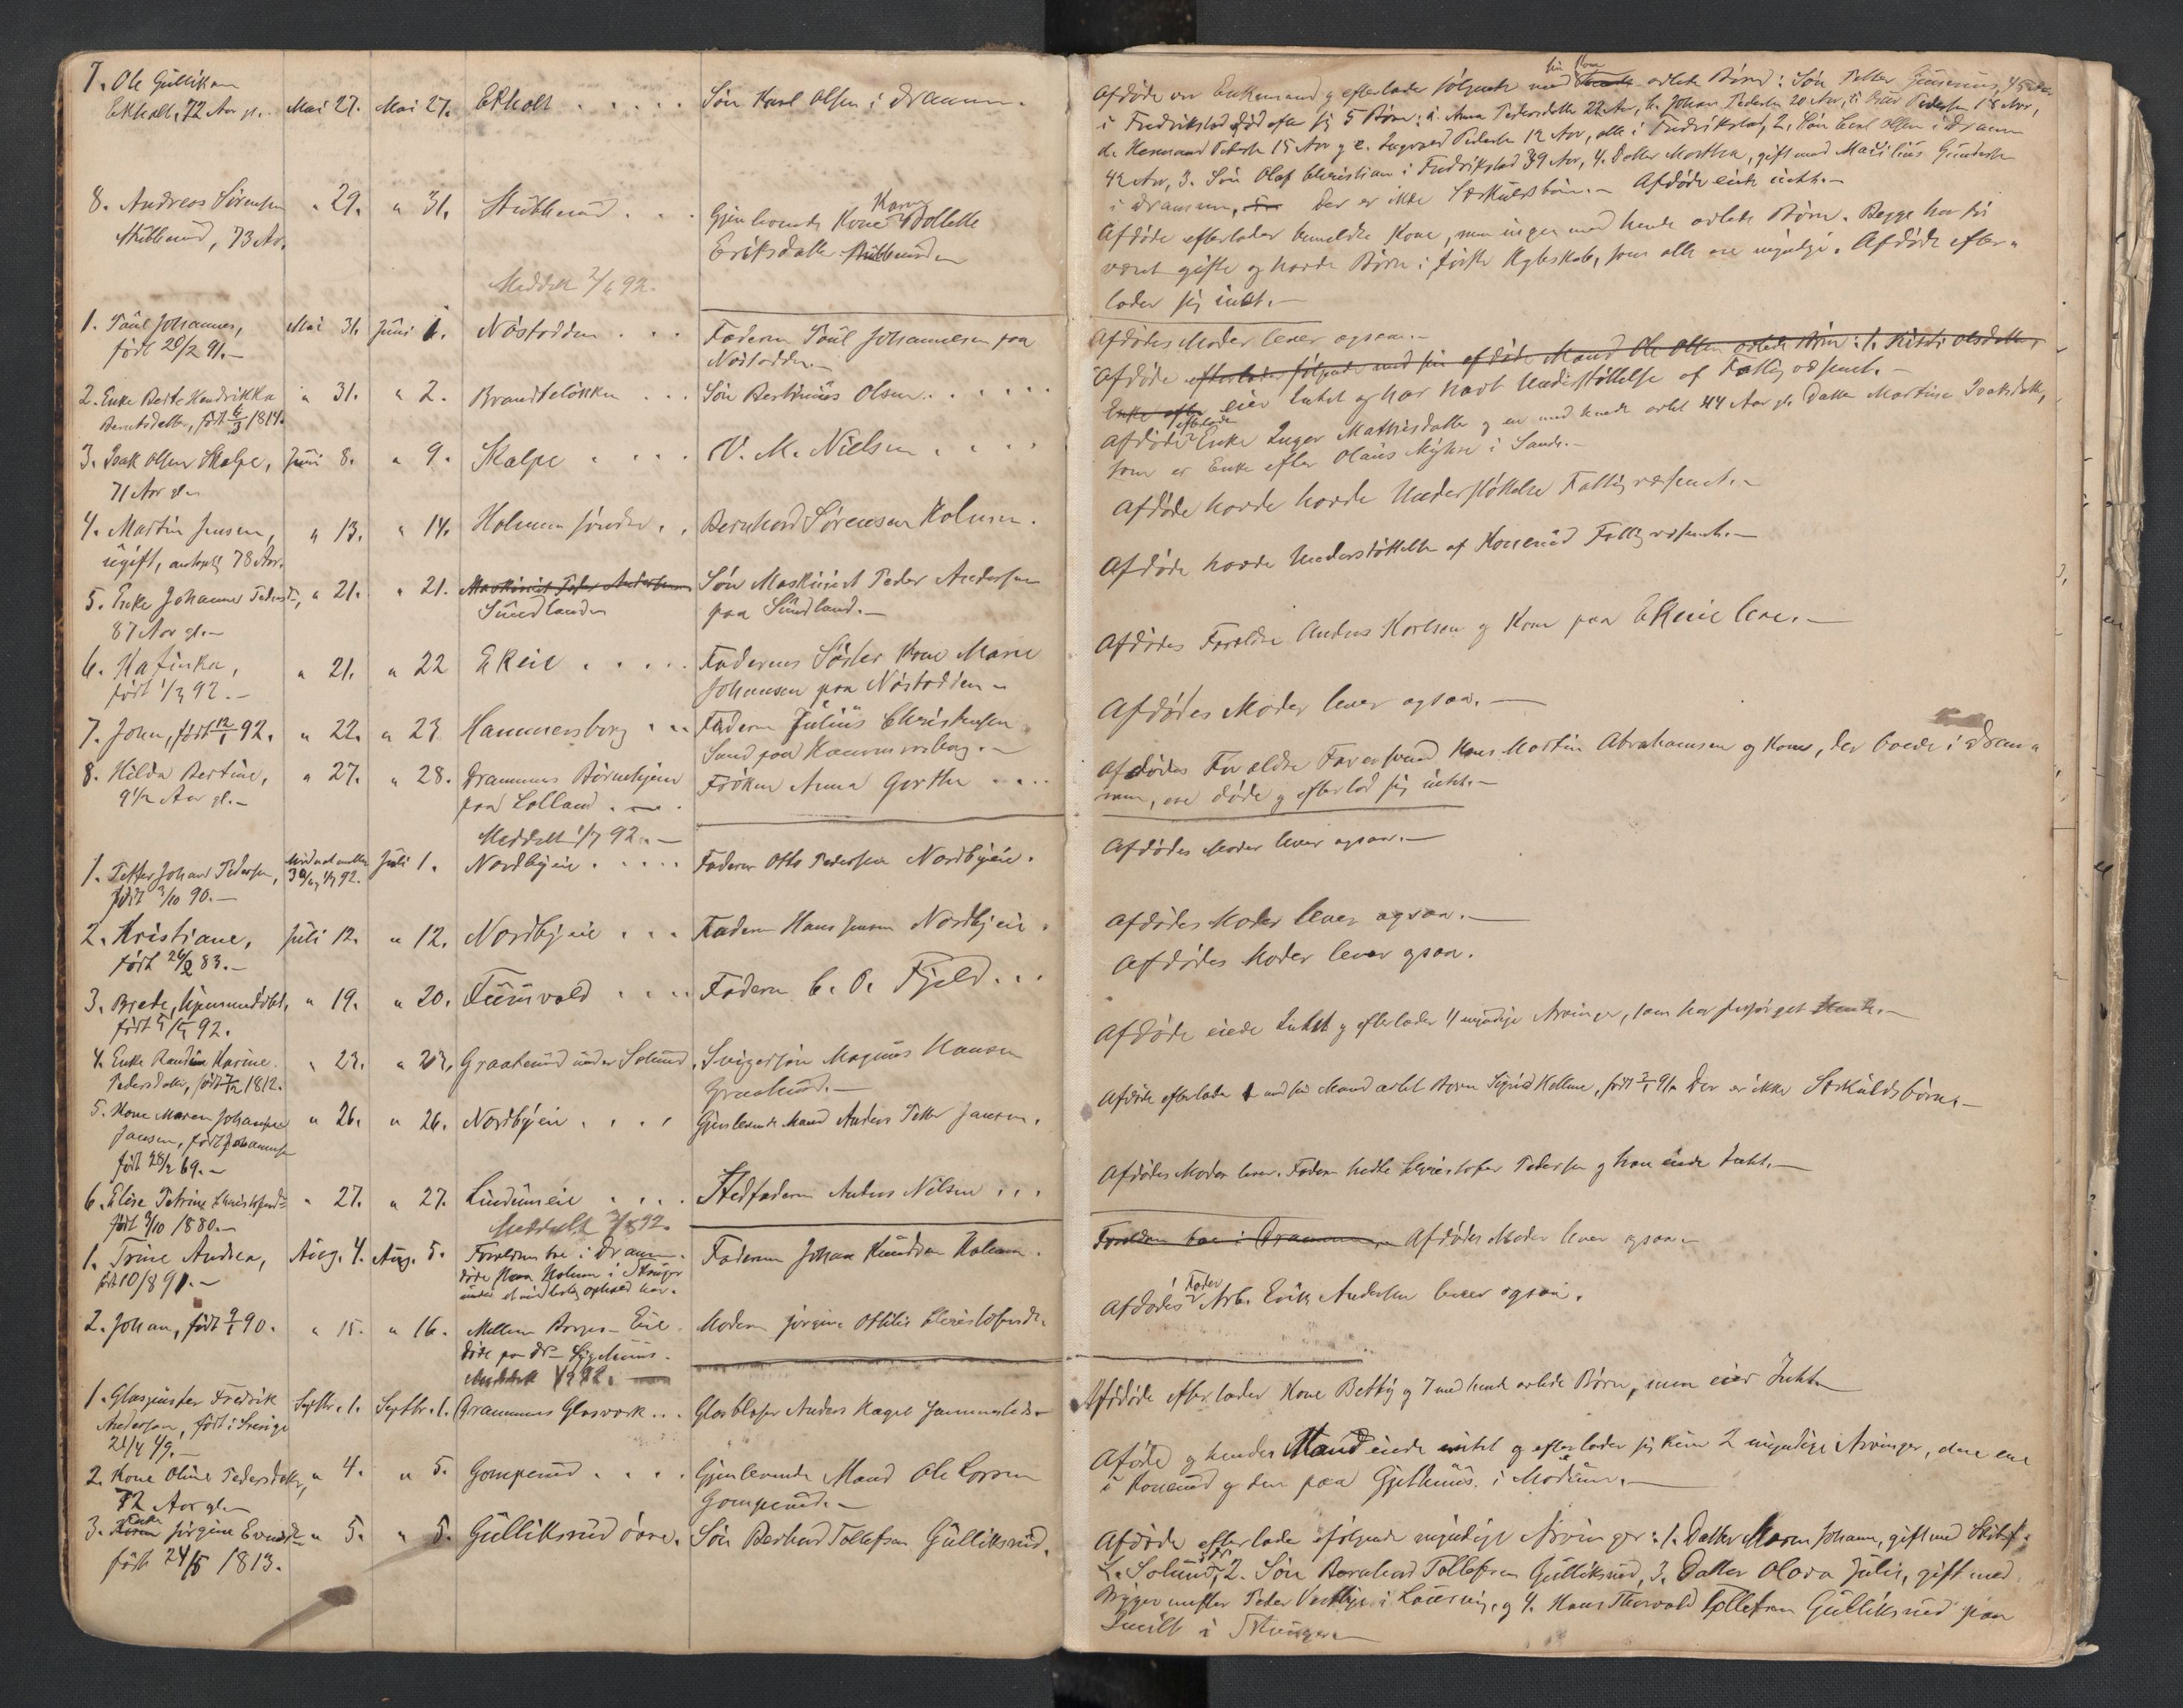 7. Ole Gulliksen
Ekholt, 72 Aar gl. Mai 27. Mai 27. Ekholt . . . . . Søn Karl Olsen i Drammen.
8. Andreas Sørensen „ 29. „ 31. Stubberud . . Gjenlevende Kone Karen Tollette
Stubberud, 73 Aar. Eriksdatter Stubberud
Meddelt 2/6 92.
1. Paul Johannes, Mai 31. Juni 1. Nøstodden . . . Faderen Paul Johannesen paa
født 20/2 91.— Nøstodden.—
2. Enke Berte Hendrikka „ 31. „ 2. Brandteløkken . . . Søn Bertinius Olsen . . . . .
Berntsdatter, født 6/3 1814.
3. Isak Olsen Skalpe, Juni 8. „ 9. Skalpe . . . . V. M. Nielsen . . . .
71 Aar gl.
4. Martin Jensen, „ 13. „ 14. Holmen søndre . . Bernhard Sørensen Holmen.
ugift, antagelig 78 Aar.
5. Enke Johanne Pedersd., „ 21. „ 21. Maskinist Peder Andersen Søn Maskinist Peder Andersen
87 Aar gl.— Sundland paa Sundland.—
6. Kafinka, „ 21. „ 22 Ekeie . . . . . Faderens Søster Kone Marie
født 1/3 92.— Johansen paa Nøstodden.
7. John, født 12/1 92. „ 22. „ 23 Hammersborg . . . Faderen Julius Christensen
Sund paa Hammersborg.—
8. Hilda Bertine, „ 27. „ 28. Drammens Børnehjem Frøken Anna Gerthe . . . .
9 1/2 Aar gl.— paa Lolland.
Meddelt 1/7 92.—
1. Petter Johan Pedersen, Midnat mellem 30/6 1/7 92. Juli 1. Nordbyeie . . . . . Faderen Otto Pedersen Nordbyeie.
født 3/10 90.—
2. Kristiane, Juli 12. „ 12. Nordbyeie . . . Faderen Hans Jensen Nordbyeie.
født 26/2 83.—
3. Brede, hjemmedøbt, „ 19. „ 20. Tuverud . . . . Faderen C. O. Fjeld . . .
født 5/5 92.
4. Enke Randine Karine „ 23. „ 23. Graaterud under Solumd Svigersøn Magnus Hansen
Pedersdatter, født 1812. Graaterud.—
5. Kone Maren Johanne „ 26. „ 26. Nordbyeie . . . . Gjenlevende Mand Anders Petter Jansen.
Jansen, født Johannesen
født 28/2 69.—
6. Elise Petrine Christofersd. „ 27. „ 27. Lindumeie . . . . Stedfaderen Anders Nilsen . . .
født 3/10 1880.— Meddelt 2/8 92.
1. Trine Andrea, Aug. 4. Aug. 5. Forældrene boe i Drammen. Faderen Johan Knudsen Holmen.
født 10/8 91.— døde paa Holmen i Skouger
under et midlertidig ophold her.
2. Johan, født 2/1 90. „ 15. „ 16. Mellem Borger-Eie Moderen Jørgine Ottilie Christofersdr.
døde paa Dr- Sygehuus.
Meddelt 1/9 92.
1. Glaspuster Fredrik Septbr. 1. Septbr. 1. Drammens Glasværk . . Glasblæser Anders Kagel Jammesteds.
Andersen, født i Sverige
21/4 49.—
2. Kone Oline Pedersdatter, „ 4. „ 5. Gomperud . . . . Gjenlevende Mand Ole Larsen
72 Aar gl.— Gomperud.—
3. Enke Jørgine Evensd. „ 5. „ 5. Gulliksrud øvre. Søn Bernhard Tollefsen Gulliksrud.
født 24/5 1813.
Afdøde var Enkemand og efterlader følgende med sin Kone avlede Børn: Søn Petter Gunerius, 45 Aar
i Fredrikstad, død efter sig 5 Børn: a. Anna Pedersdatter 22 Aar, b. Johan Pedersen 20 Aar, c. Pedersen 18 Aar,
d. Hermand Pedersen 15 Aar og e. Ingvald Pedersen 12 Aar, alle i Fredrikstad, 2. Søn Carl Olsen i Drammen
42 Aar, 3. Søn Olaf Christian i Fredrikstad 39 Aar, 4. Datter Martha, gift med Gundersen
i Drammen. Der er ikke Særkuldsbørn.— Afdøde eiede intet.—
Afdøde efterlader bemeldte Kone, men ingen med hende avlede Børn. Begge har før
været gifte og havde Børn i første Ægteskab, som alle ere myndige. Afdøde efter-
lader sig intet.—
Afdødes Moder lever ogsaa.—
Afdøde efterlader følgende med sin afdøde Mand Ole Olsen avlede Børn: 1. Kisti Olsdatter,
Enke efter eier Intet og har havt Understøttelse af Fattigvæsenet.—
Afdøde efterlader Enke Inger Mathisdatter og en med hende avlet 44 Aar gl. Datter Martine Isaksdatter,
som er Enke efter Olaus Myhre i Sande.—
Afdøde havde havde Understøttelse Fattigvæsenet.—
Afdøde havde Understøttelse af Konerud Fattigvæsenet.—
Afdødes Forældre Anders Karlsen og Kone paa Ekeie leve.—
Afdødes Moder lever ogsaa.—
Afdødes Forældre Farersvend Hans Martin Abrahamsen og Kone, der boede i Dram-
men, ere døde og efterlod sig intet.—
Afdødes Moder lever ogsaa.—
Afdødes Moder lever ogsaa.—
Afdødes Moder lever ogsaa.
Afdøde eiede Intet og efterlader 4 myndige Arvinger, som har forsørget hende.—
Afdøde efterlader 1 med sin Mand avlet Barn Sigrid Helene, født 91. Der er ikke Særkuldsbørn.—
Afdødes Moder lever. Faderen hedte Christofer Pedersen og han eiede Intet.—
Forældrene boe i Drammen. Afdødes Moder lever ogsaa.—
Afdødes Fader Arb. Erik Andersen lever ogsaa.
Afdøde efterlader Kone Betty og 7 med hende avlede Børn, men eier Intet.
Afdøde og hendes Mand eiede intet og efterlader sig kun 2 myndige Arvinger, den ene
i Konerud og den paa Gjethuus i Modum.—
Afdøde efterlader følgende myndige Arvinger: 1. Datter Maren Johanne, gift med Skibsf.
L. Solumd, 2. Søn Bernhard Tollefsen Gulliksrud, 3. Datter Olava Julie, gift med
Bygger Peder Vestby i Laurvig, og 4. Hans Thorvald Tollefsen Gulliksrud paa
i Skouger.—